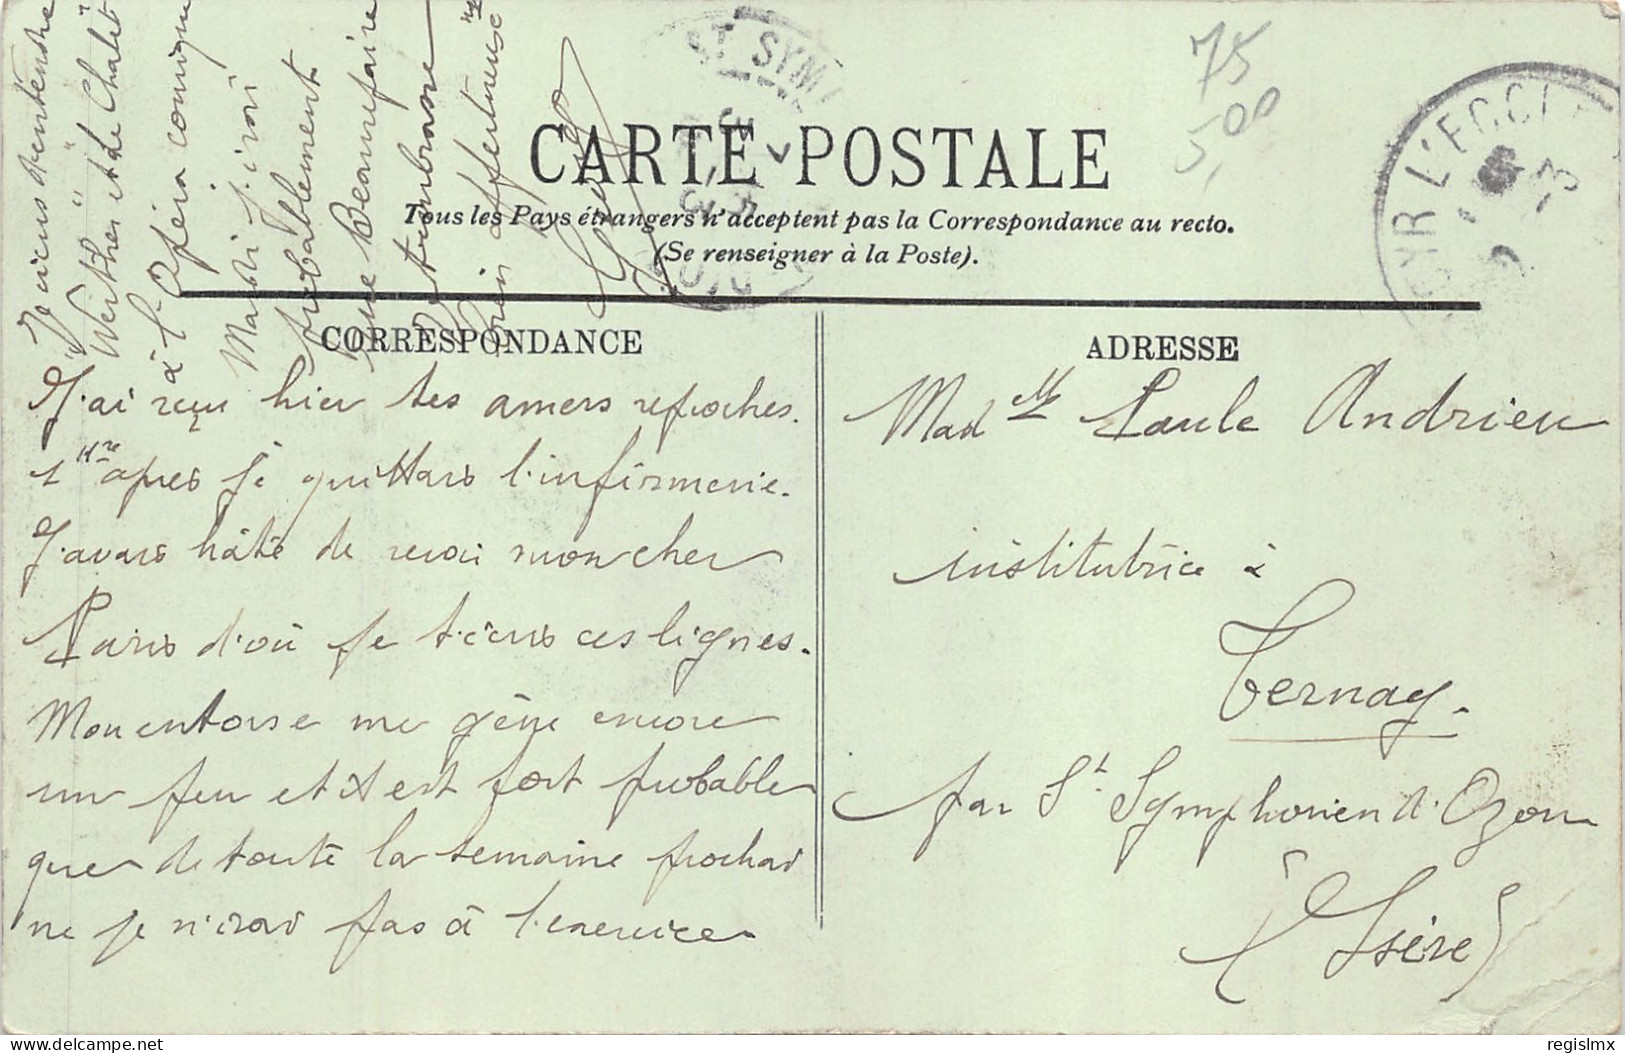 CARTE POSTALE
Tous les Pays étrangers n'acceptent pas la Correspondance au recto.
(Se renseigner à la Poste).
CORRESPONDANCE
J'ai reçu hier tes amers reproches.
1 Hre après je quittais l'infirmerie.
J'avais hâte de revoir mon cher
Paris d'où je t'écris ces lignes.
Mon entorse me gêne encore
un peu et il est fort probable
que de toute la semaine prochai
ne je n'irai pas à l'exercice
Je viens d'entendre
"Werther" et "Le Chalet"
à l'Opéra comique
Mardi j'irai
probablement
Beaurepaire
Je t'embrasse
bien affectueuse
ADRESSE
Mad elle Paule Andrieu
institutrice à
Ternay.
par St Symphorien d'Ozon
(Isère)
75
5,00
ST SYM
CYR L'ECOL
delcampe.net
regislmx